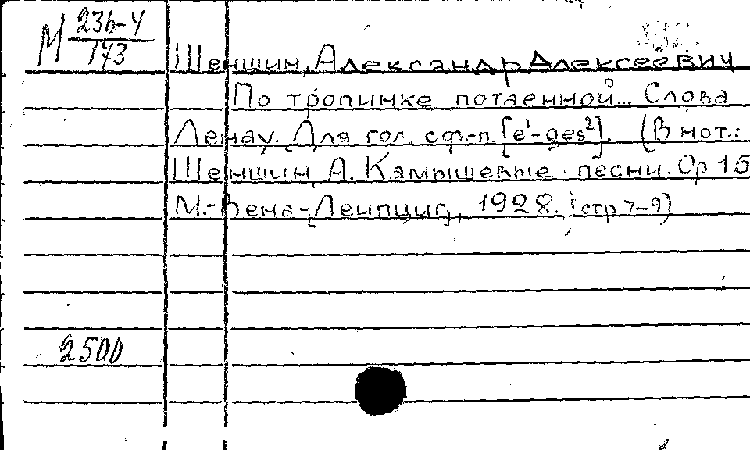 М 236-4/173
Шеншин, Александр Алексеевич
По тропинке потаенной... Слова
Ленау. Для гол. с ф-п. [e¹-ges²]. (В нот.:
Шеншин, А. Камышевые песни. Ор 15
М.-Вена-Лейпциг, 1928. (стр 7-9)
2500